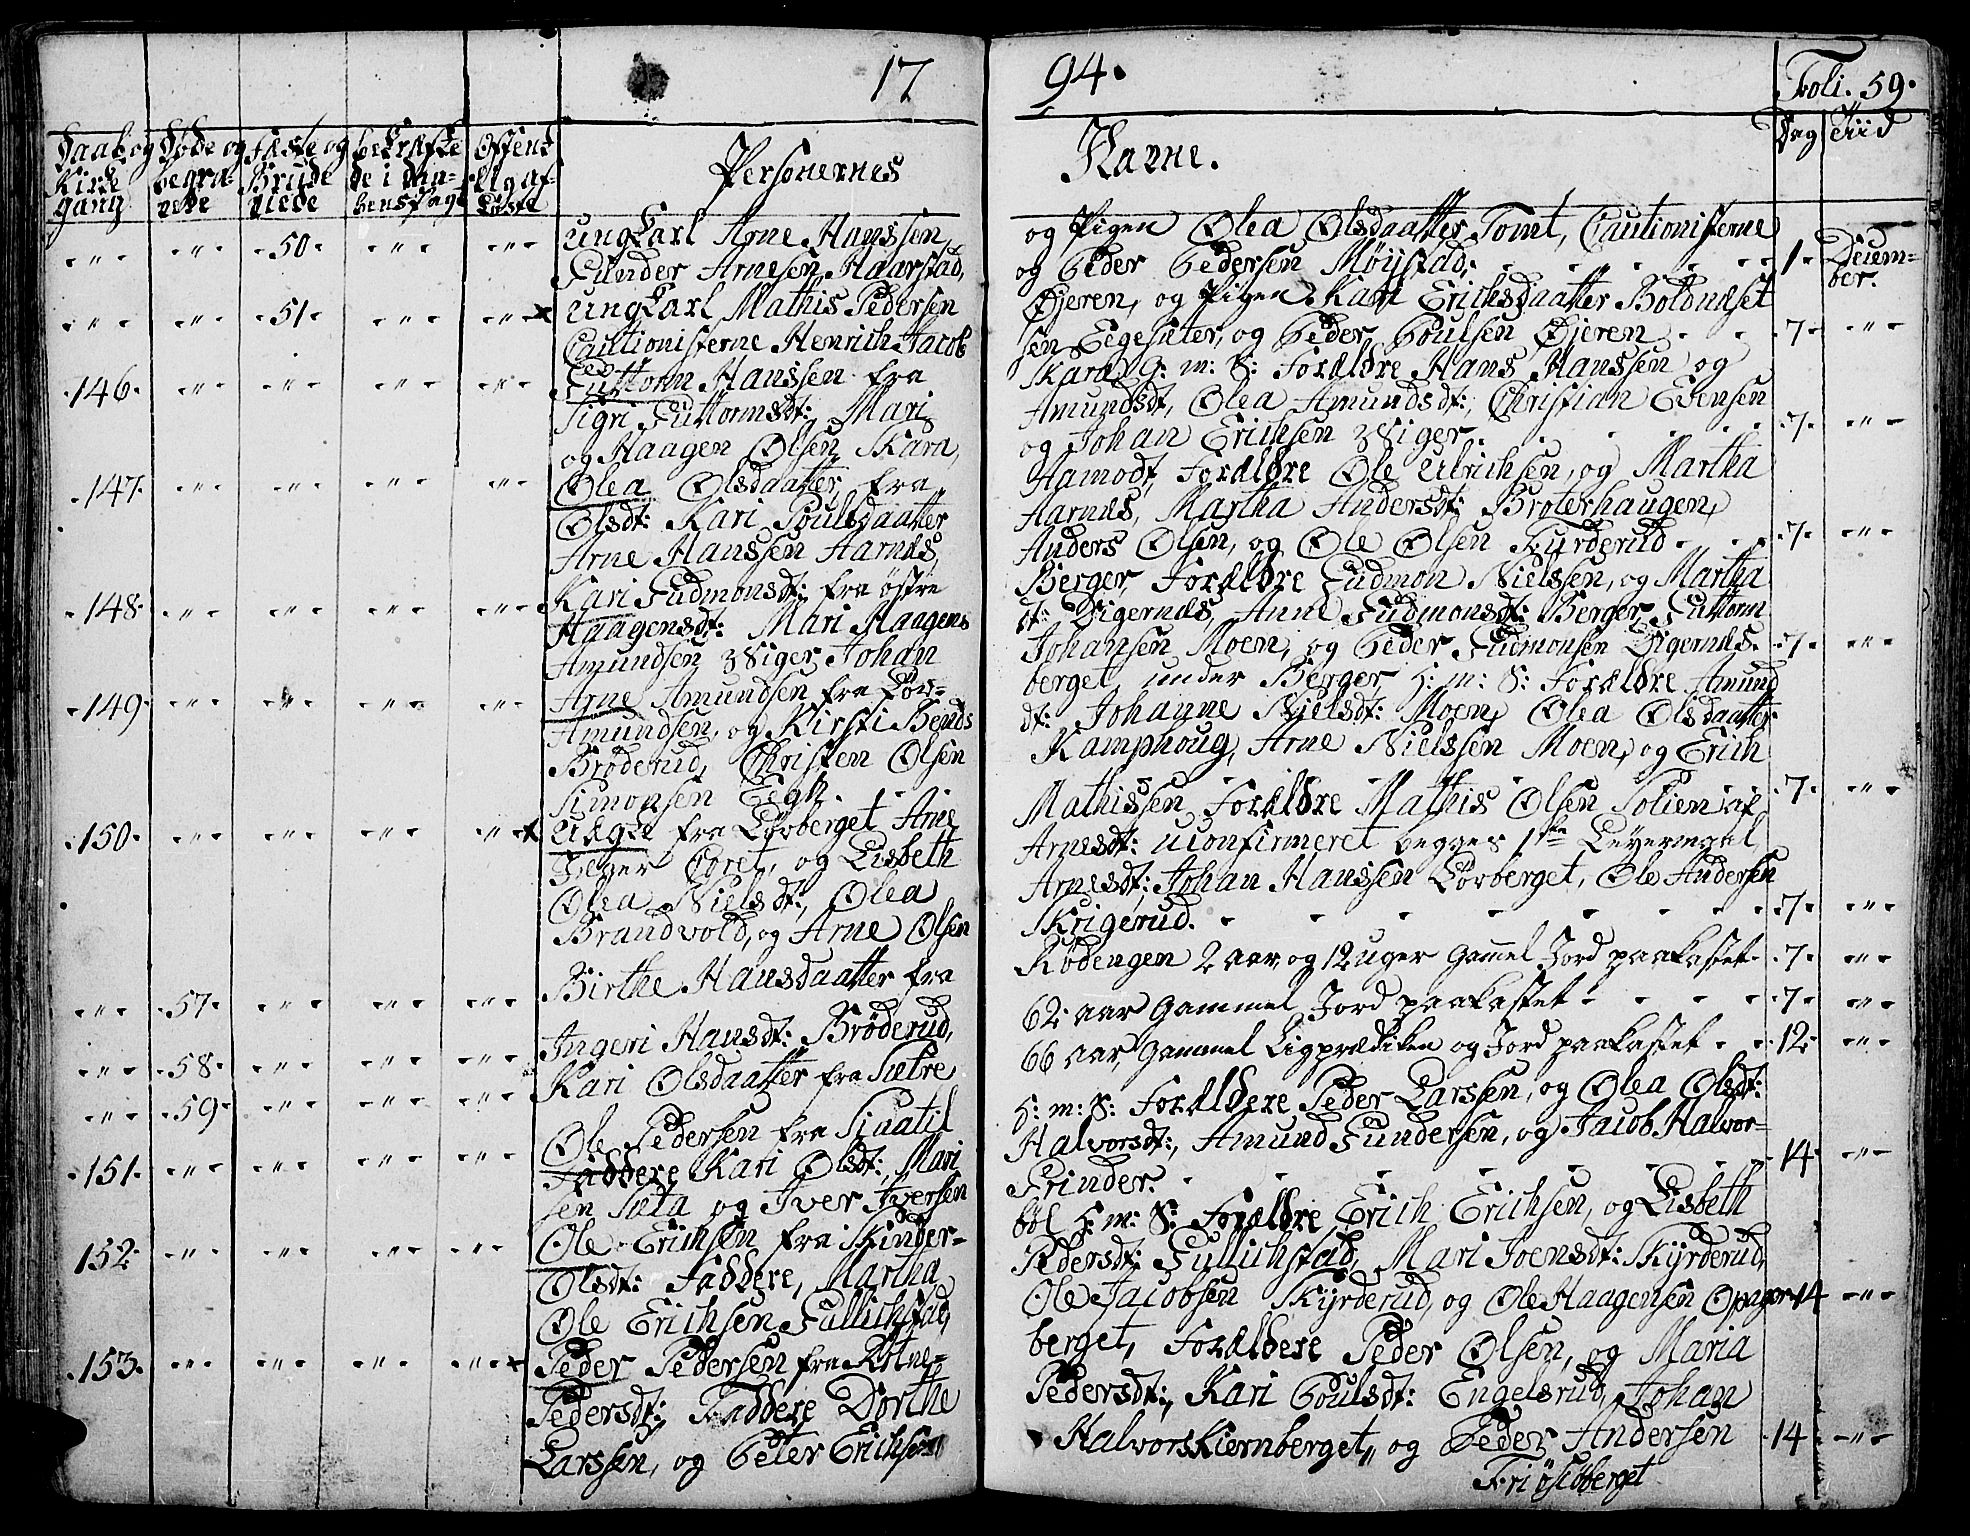 17 94. Foli. 59.
Daab og Kirkegang
Døde og begravede
Fæste og Brude viede
bekræftede i Daabens Pagt
Offentlig afløste
Personernes Navne.
Dag Tiid
50. ungkarl Arne Hanssen og Pigen Olea Olsdaatter Tomt, Cautionisterne
Gunder Arnesen Haarstad, og Peder Pedersen Møystad. 1. December.
51. ungkarl Mathis Pedersen Øjeren, og Pigen Kari Erichsdaatter Boldnæset
Cautionisterne Henrich Jacobsen Eegesæter, og Peder Poulsen Øjeren 7.
146. Guttorm Hanssen fra Skara g: m: S: Forældre Hans Hanssen og
Sigri Guttormsdt: Mari Amundsdt, Olea Amundsdt:, Christian Evensen
og Haagen Olsen Skara, og Johan Erichsen Wiger. 7.
147. Olea Olsdaatter fra Aamodt, Forældre Ole Ulrichsen, og Martha
Olsdt: Kari Poulsdaatter Aarnæs, Martha Andersdt: Broterhaugen,
Arne Hanssen Aarnæs, Anders Olsen, og Ole Olsen Kyrderud 7.
148. Kari Gudmonsdt: fra østre Berger, Forældre Gudmon Nielssen, og Martha
Haagensdt: Mari Haagensdt: Digernæs, Anne Gudmonsdt: Berger, Guttorm
Amundsen Wiger, Johan Johansen Moen, og Peder Gudmonsen Digernæs. 7.
149. Arne Amundsen fra Lørberget under Berger, g: m: S: Forældre Amund
Amundsen, og Kirsti Bendsdt: Johanne Nielsdt: Moen, Olea Olsdaatter
Brøderud, Christen Olsen Kamphoug, Arne Nielssen Moen, og Erich
Simonsen Eegh. 7.
150. uægte fra Lørberget Arne Mathissen, Forældre Mathis Olsen Solien af
Jæger Corpset, og Lisbeth Arnesdt: uconfirmeret begges 1ste Leyermaal,
Olea Nielsdt:, Olea Arnesdt: Johan Hanssen Lørberget, Ole Andersen
Brandvold, og Arne Olsen Skrigerud. 7.
57. Birthe Hansdaatter fra Rødengen 2 aar, og 12 uger Gammel Jord paakastet 7.
58. Ingeri Hansdt: Brøderud, 62 aar Gammel Jord paakastet 7.
59. Kari Olsdaatter fra Sætre 66 aar, Gammel Ligprædiken og Jord paakastet 12.
151. Ole Pedersen fra Siaatil g: m: S: Forældere Peder Larssen, og Olea Olsdt:
Faddere Kari Olsdt:, Mari Halvorsdt:, Amund Gundersen, og Jacob Halvorsen
Sæta og Iver Iversen Grinder. 14
152. Ole Erichsen fra Skinderbøl g: m: S: Forældre Erich Erichsen, og Lisbeth
Olsdt: Faddere, Martha Pedersdt: Gullichstad, Mari Joensdt: Skyrderud,
Ole Erichsen Gullichstad, Ole Jacobsen Skyrderud, og Ole Haagensen Opager 14
153. Peder Pedersen fra Kolneberget, Forældere Peder Olsen, og Maria
Pedersdt:, Faddere Dorthe Pedersdt:, Kari Poulsdt: Engelsrud, Johan
Larssen, og Peter Erichsen Halvorskiernberget, og Peder Andersen 14
Friøselberget